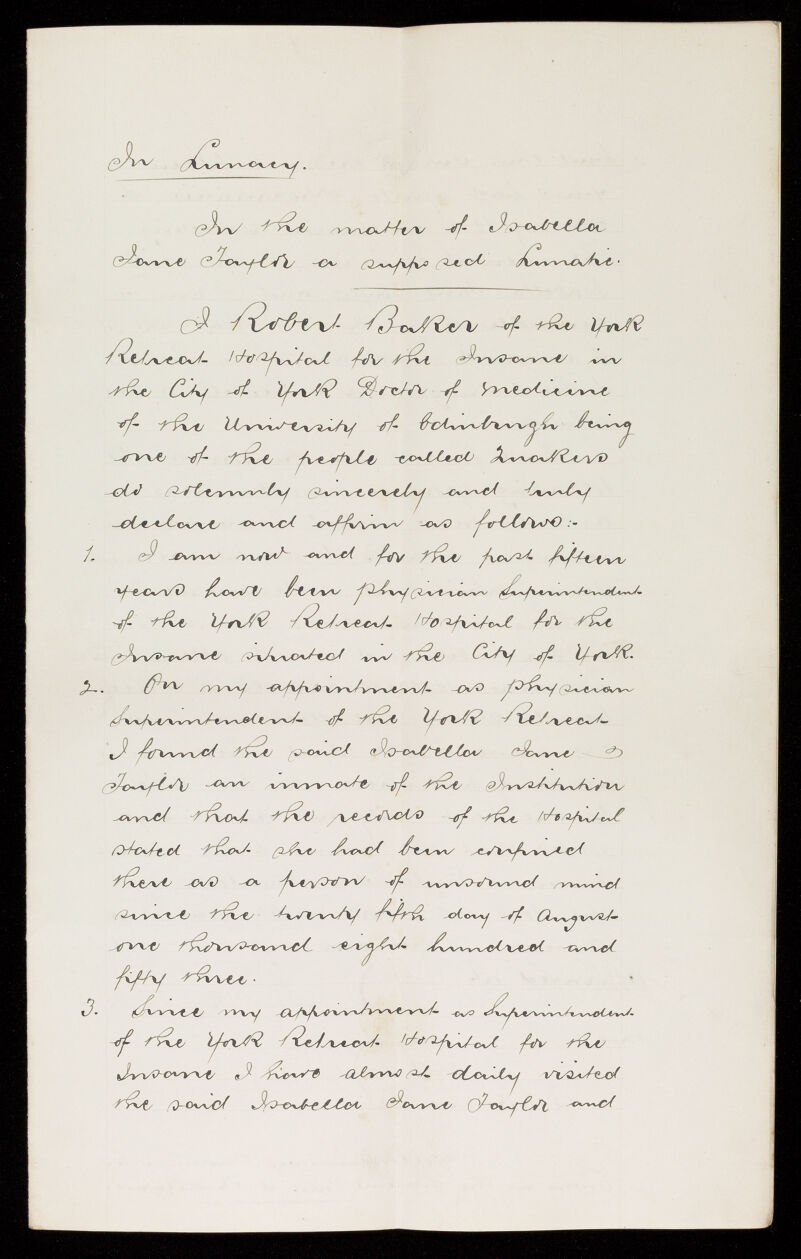 In Lunacy.
In the matter of Isabella
Jane Taylor a supposed Lunatic.
I Robert Baker of the York
Retreat Hospital for the Insane in
the City of York Doctor of Medicine
of the University of Edinburgh being
one of the people called Quakers
do solemnly sincerely and truly
declare and affirm as follows:-
1. I am now and for the past fifteen
years have been physician Superintendent
of the York Retreat Hospital for the
Insane situated in the City of York.
2. On my appointment as physician
Superintendent of the York Retreat
I found the said Isabella Jane
Taylor an inmate of the Institution
and that the records of the Hospital
stated that she had been confined
there as a person of unsound mind
since the twenty fifth day of August
one thousand eight hundred and
fifty three.
3. Since my appointment as Superintendent
of the York Retreat Hospital for the
Insane I have almost daily visited
the said Isabella Jane Taylor and